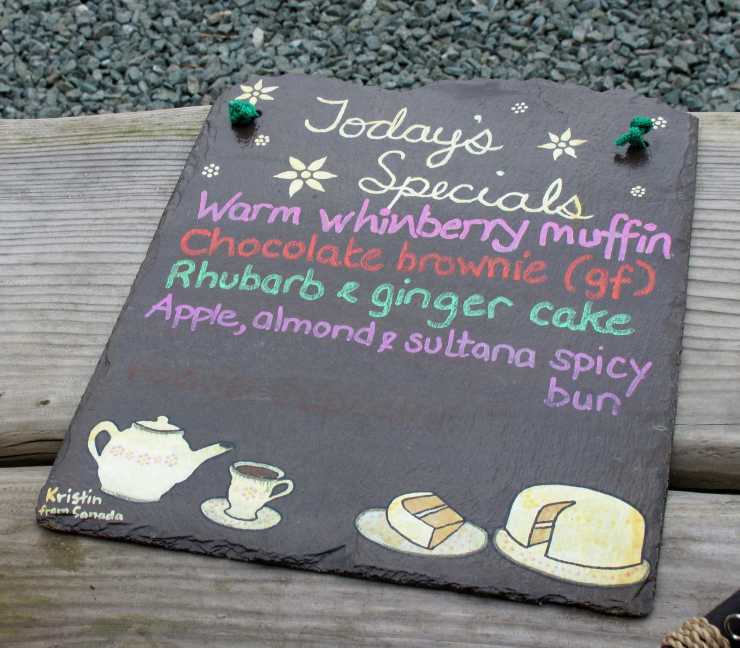 Today's
Specials
Warm whinberry muffin
Chocolate brownie (gf)
Rhubarb & ginger cake
Apple, almond & sultana spicy
bun
Kristin
from Canada